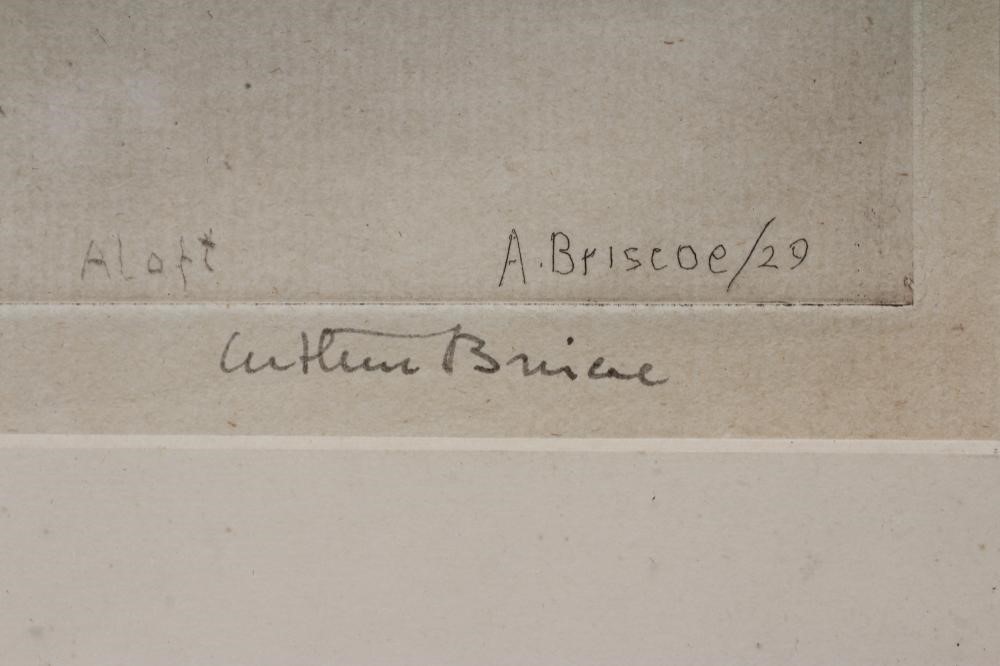 Aloft A.Briscoe/29
Arthur Briscoe